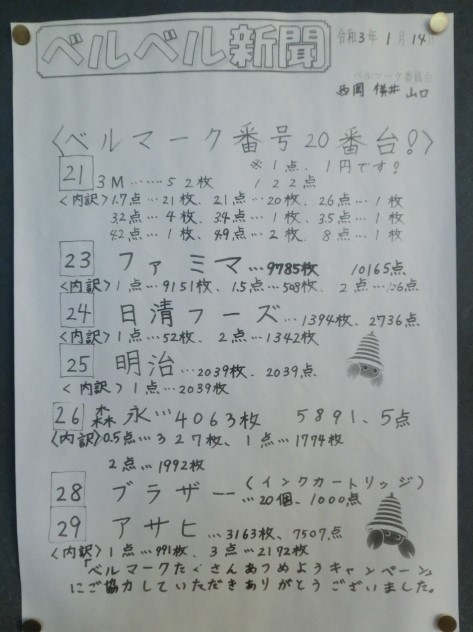 ベルベル新聞
令和3年1月14日
ベルマーク委員会
西岡 横井 山口
〈ベルマーク番号20番台!〉
※1点、1円です!
21 3M……52枚 122点
〈内訳〉1.7点…21枚、2.1点…20枚、2.6点…1枚
3.2点…4枚、3.4点…1枚、3.5点…1枚
4.2点…1枚、4.9点…2枚、8点…1枚
23 ファミマ…9785枚 10165点
〈内訳〉1点…9151枚、1.5点…508枚、2点…126点
24 日清フーズ…1394枚、2736点
〈内訳〉1点…52枚、2点…1342枚
25 明治…2039枚、2039点
〈内訳〉1点…2039枚
26 森永…4063枚 5891.5点
〈内訳〉0.5点…327枚、1点…1774枚
2点…1992枚
28 ブラザー(インクカートリッジ)
…20個、1000点
29 アサヒ…3163枚、7507点
〈内訳〉1点…991枚、3点…2192枚
「ベルマークたくさんあつめようキャンペーン」
にご協力していただきありがとうございました。